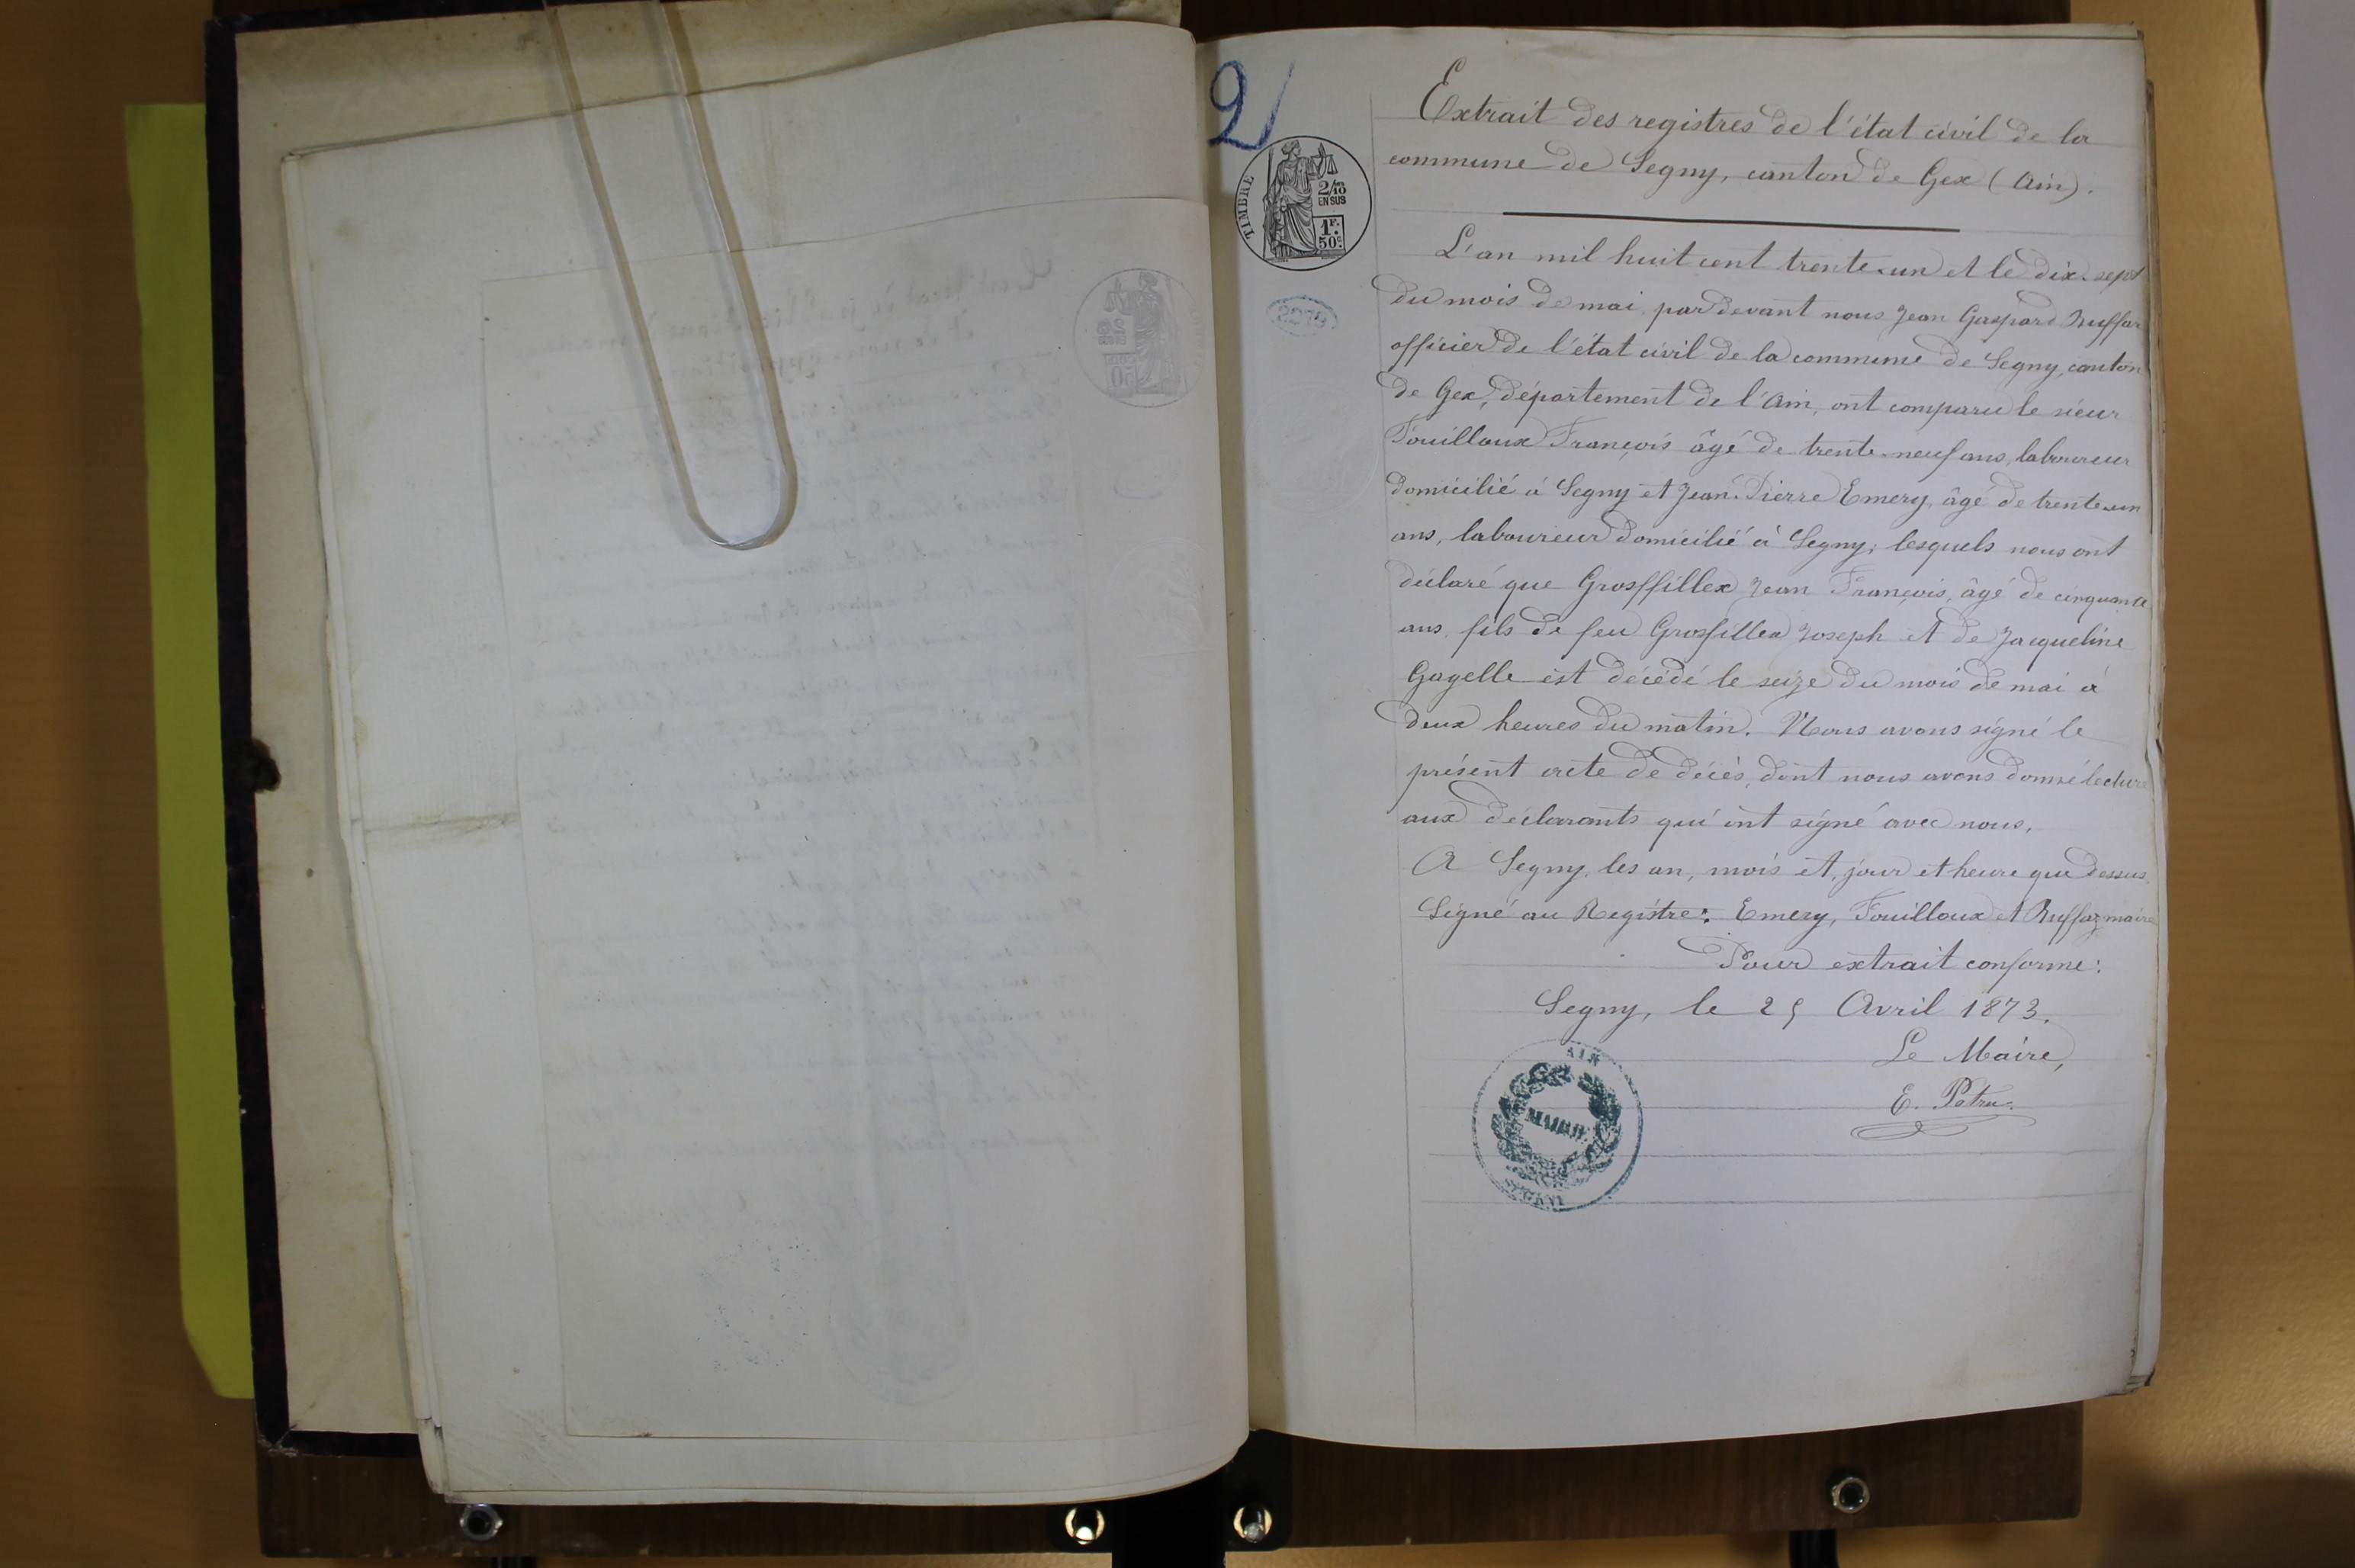 2
Extrait des registres de l'état civil de la
commune de Segny, canton de Gex (Ain).
TIMBRE
2/10
EN SUS
1F.
50c
2279
L'an mil huit cent trente-un et le dix-sept
du mois de mai, par devant nous Jean Gaspard Ruffaz
officier de l'état civil de la commune de Segny, canton
de Gex, département de l'Ain, ont comparu le sieur
Fouilloux François âgé de trente-neuf ans, laboureur
domicilié à Segny et Jean-Pierre Emery, âgé de trente-un
ans, laboureur domicilié à Segny; lesquels nous ont
déclaré que Grosffillex Jean François, âgé de cinquante
ans, fils de feu Grosfillex Joseph et de Jacqueline
Gagelle est décédé le seize du mois de mai à
deux heures du matin. Nous avons signé le
présent acte de décès, dont nous avons donné lecture
aux déclarants qui ont signé avec nous,
A Segny, les an, mois et, jour et heure que dessus.
Signé au Registre: Emery, Fouilloux et Ruffaz maire
Pour extrait conforme:
Segny, le 25 Avril 1873.
Le Maire,
E. Patru
AIN
MAIRIE
SEGNY